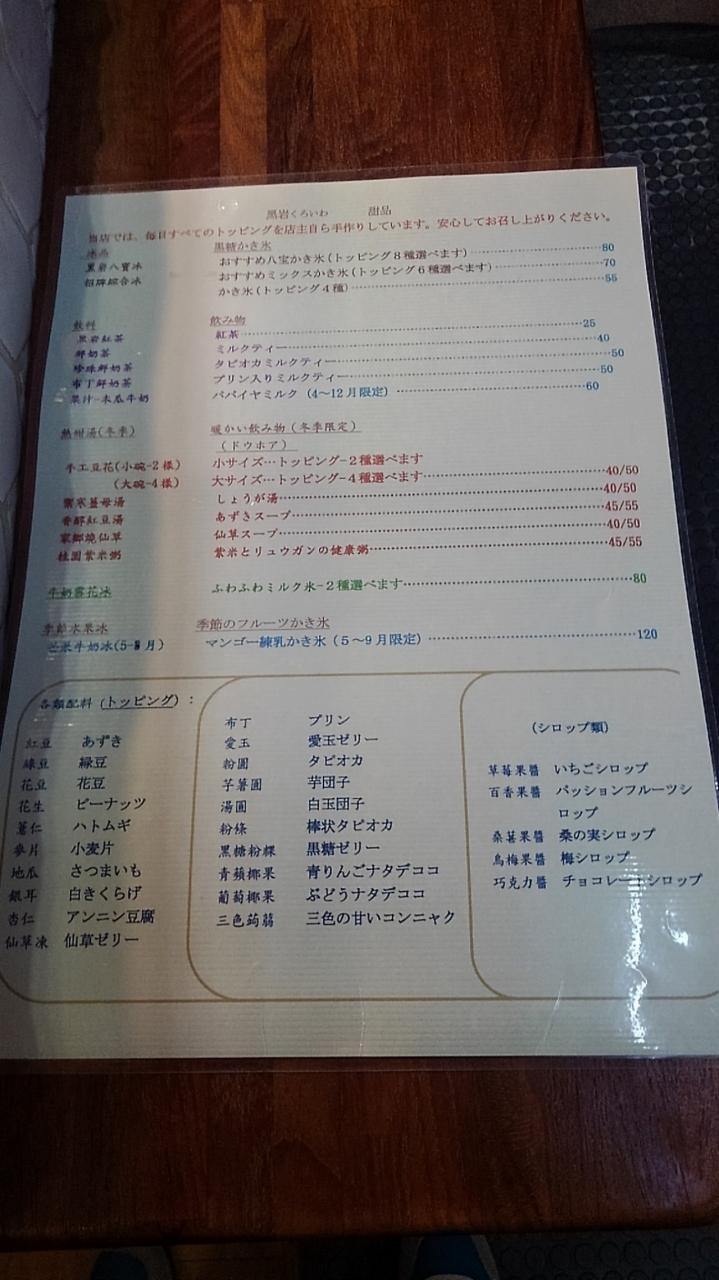 黒岩くろいわ 甜品
当店では、毎日すべてのトッピングを店主自ら手作りしています。安心してお召し上がりください。
冰品 黒糖かき氷
黑岩八寶冰 おすすめ八宝かき氷(トッピング8種選べます) 80
招牌綜合冰 おすすめミックスかき氷(トッピング6種選べます) 70
かき氷(トッピング4種) 55
飲料 飲み物
黑岩紅茶 紅茶 25
鮮奶茶 ミルクティー 40
珍珠鮮奶茶 タピオカミルクティー 50
布丁鮮奶茶 プリン入りミルクティー 50
果汁-木瓜牛奶 パパイヤミルク (4~12月限定) 60
熱甜湯(冬季) 暖かい飲み物(冬季限定)
(ドウホア)
手工豆花(小碗-2様) 小サイズ…トッピング-2種選べます
(大碗-4様) 大サイズ…トッピング-4種選べます 40/50
禦寒薑母湯 しょうが湯 40/50
香醇紅豆湯 あずきスープ 45/55
家鄉燒仙草 仙草スープ 40/50
桂圓紫米粥 紫米とリュウガンの健康粥 45/55
牛奶雪花冰 ふわふわミルク氷-2種選べます 80
季節水果冰 季節のフルーツかき氷
芒果牛奶冰(5-9月) マンゴー練乳かき氷(5~9月限定) 120
各類配料 (トッピング):
紅豆 あずき
綠豆 緑豆
花豆 花豆
花生 ピーナッツ
薏仁 ハトムギ
麥片 小麦片
地瓜 さつまいも
銀耳 白きくらげ
杏仁 アンニン豆腐
仙草凍 仙草ゼリー
布丁 プリン
愛玉 愛玉ゼリー
粉圓 タピオカ
芋薯圓 芋団子
湯圓 白玉団子
粉條 棒状タピオカ
黑糖粉粿 黒糖ゼリー
青蘋椰果 青りんごナタデココ
葡萄椰果 ぶどうナタデココ
三色蒟蒻 三色の甘いコンニャク
(シロップ類)
草莓果醬 いちごシロップ
百香果醬 パッションフルーツシ
ロップ
桑葚果醬 桑の実シロップ
烏梅果醬 梅シロップ
巧克力醬 チョコレートシロップ